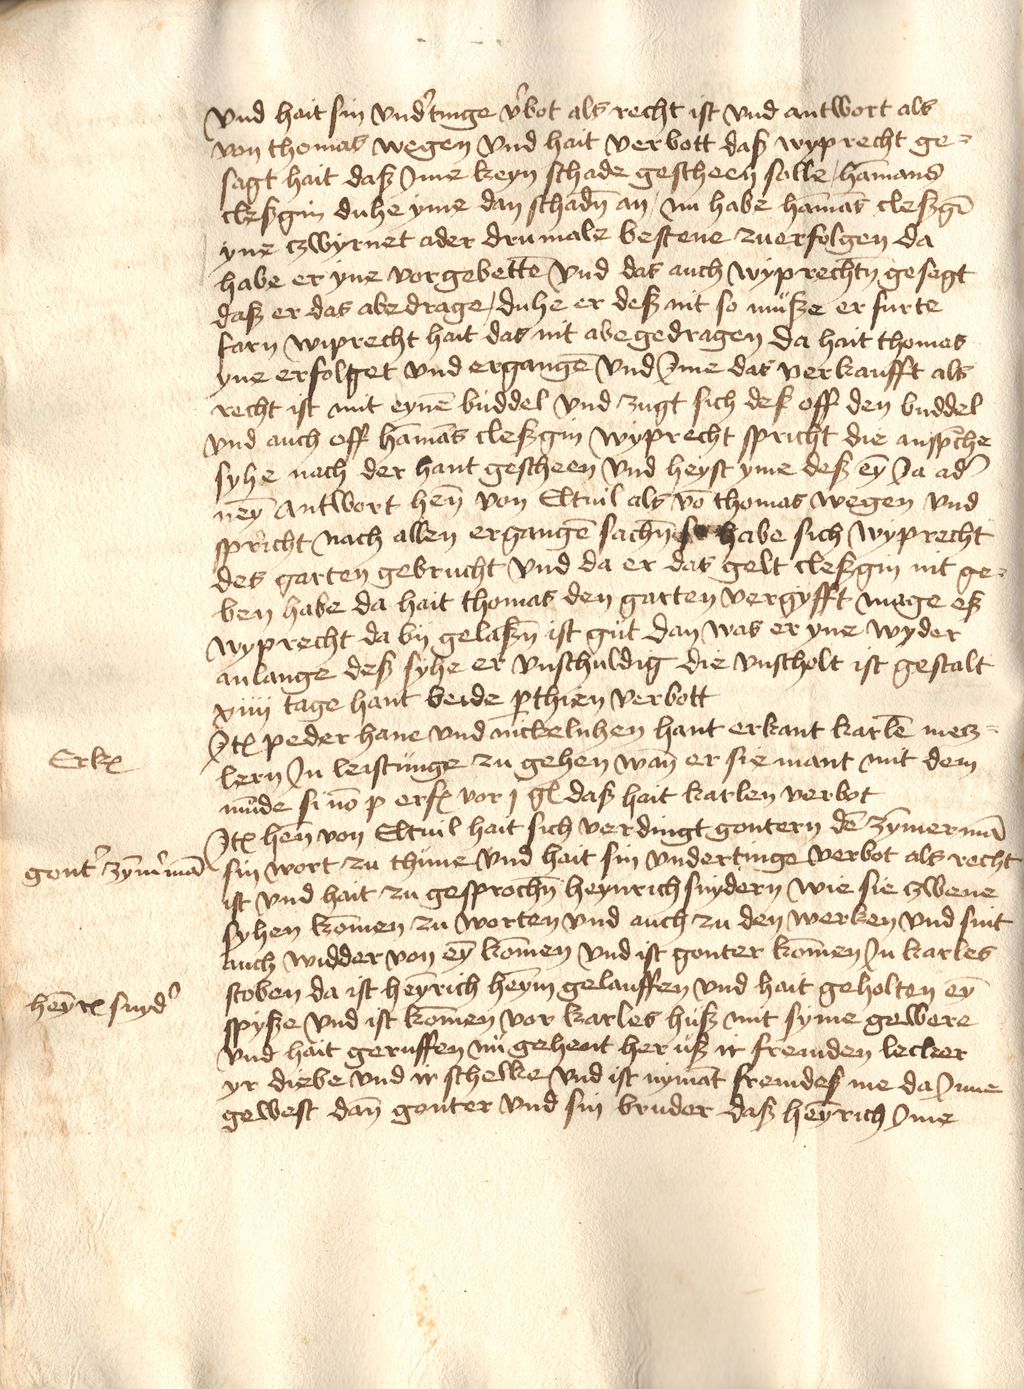 vnd hait sin vnd'tinge v'bot als recht ist vnd antwort als
von thomas wegen vnd hait verbott daß wyprecht ge-
sagt hait daß Ime keyn schade gescheen solle / hāmans
cleßgin duhe yme dan schadn̄ an / nu habe hāmās cleßgī
yne czwyrnet ader drumale bestene zuerfolgen da
habe er yne vorgebettē vnd das auch wyprechtn̄ gesagt
daß er das abedrage / duhe er deß nit so muße er furte
farn wiprecht hait das nit abegedragen da hait thomas
yne erfolget vnd ergangē vnd Ime das verkaufft als
recht ist mit eynē buddel vnd zugt sich deß off den buddel
vnd auch off hāmās cleßgin wyprecht spricht die ansp̄che
syhe nach der hant gescheen vnd heyst yme deß eȳ Ja ad'
neȳ Antwort hen̄ von Eltuil als vō thomas wegen vnd
spricht nach allen ergangē sachn̄ so habe sich wyprecht
des garten gebrucht vnd da er das gelt cleßgin nit ge-
ben habe da hait thomas den garten vergyfft mage eß
wyprecht da bij gelaßn̄ ist gut dan was er yne wyder
anlange deß syhe er vnschuldig die vnscholt ist gestalt
xiiij tage hant beide p̱thien verbott
Itꝫ peder hane vnd nickelnhen hant erkant karlē mecz-
Erkꝫ
lern In leistunge zu gehen wan̄ er sie mant mit dem
mūde si nō p erfꝫ vor j gl daß hait karlen verbot
Itꝫ hen̄ von Eltuil hait sich verdingt gontern dē zȳmermā
gont' zȳm'mā
sin wort zu thūne vnd hait sin vndertinge verbot als recht
ist vnd hait zu gesprochn̄ heynrich snydern wie sie czwene
syhen kōmen zu worten vnd auch zu den werken vnd sint
auch widder von eȳ kōmen vnd ist gonter kōmen In karles
stoben da ist heȳrich heȳm gelauffen vnd hait geholten eȳ
heȳrꝫ snyd'
spyße vnd ist kōmen vor karles huß mit syme gewere
vnd hait geruffen nu gehent her uß ir fremden lecker
yr diebe vnd ir schelke vnd ist nymāt fremdeß me da Inne
gewest dan̄ gonter vnd sin bruder daß heȳrich Ime